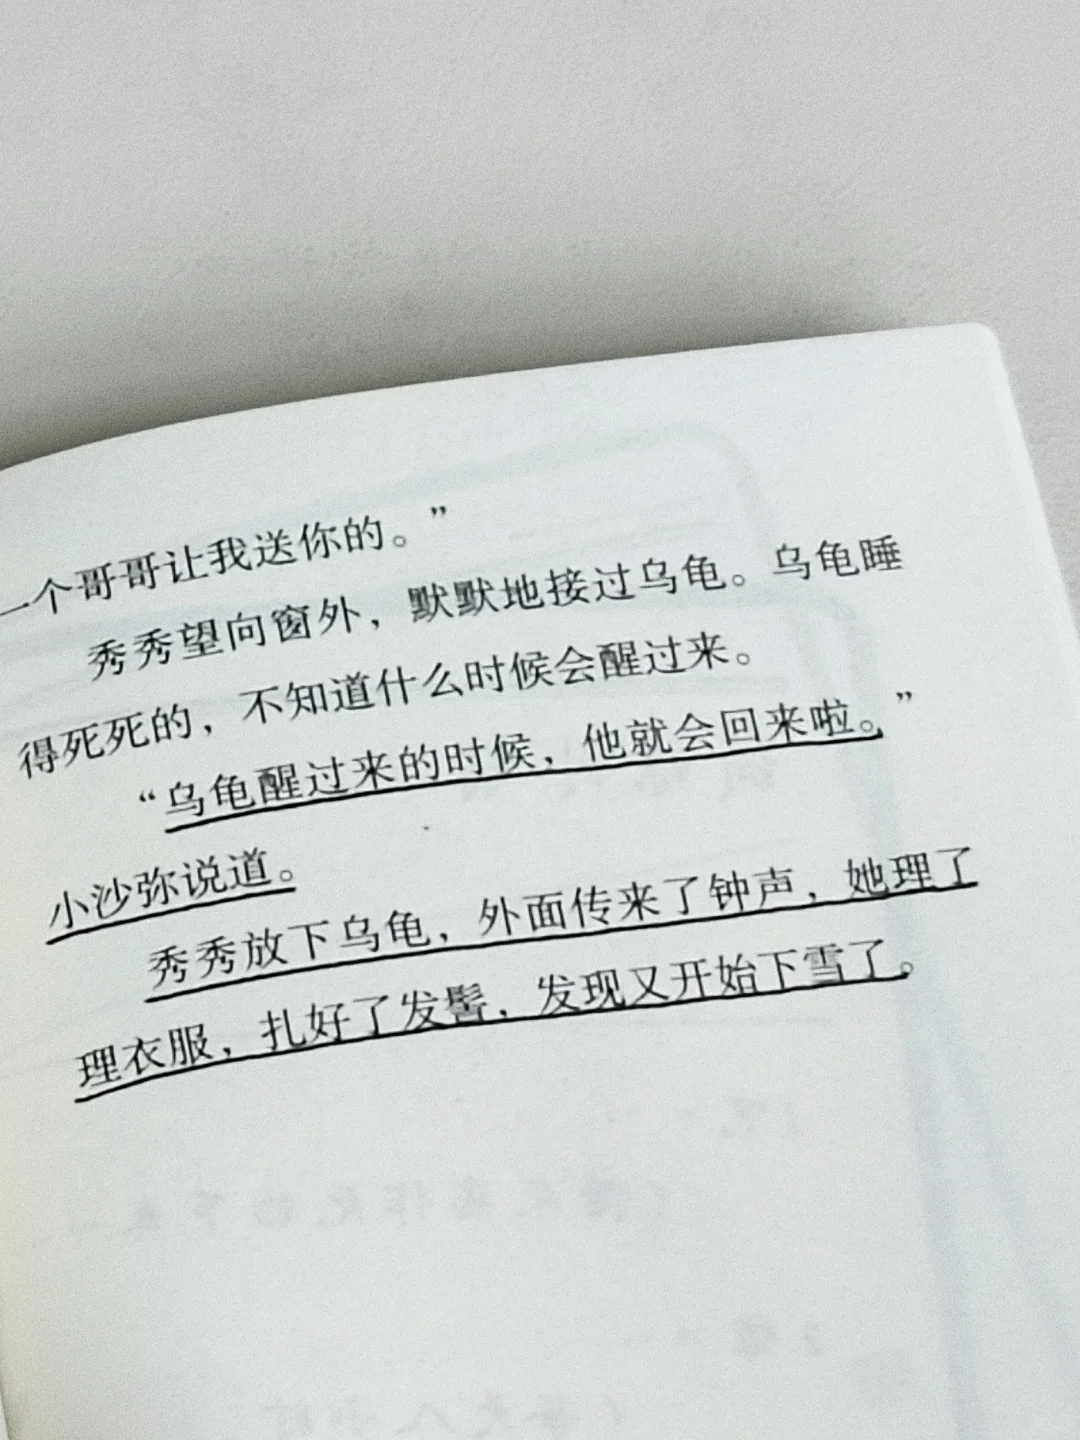 一个哥哥让我送你的。”
秀秀望向窗外，默默地接过乌龟。乌龟睡
得死死的，不知道什么时候会醒过来。
“乌龟醒过来的时候，他就会回来啦。”
小沙弥说道。
秀秀放下乌龟，外面传来了钟声，她理了
理衣服，扎好了发髻，发现又开始下雪了。